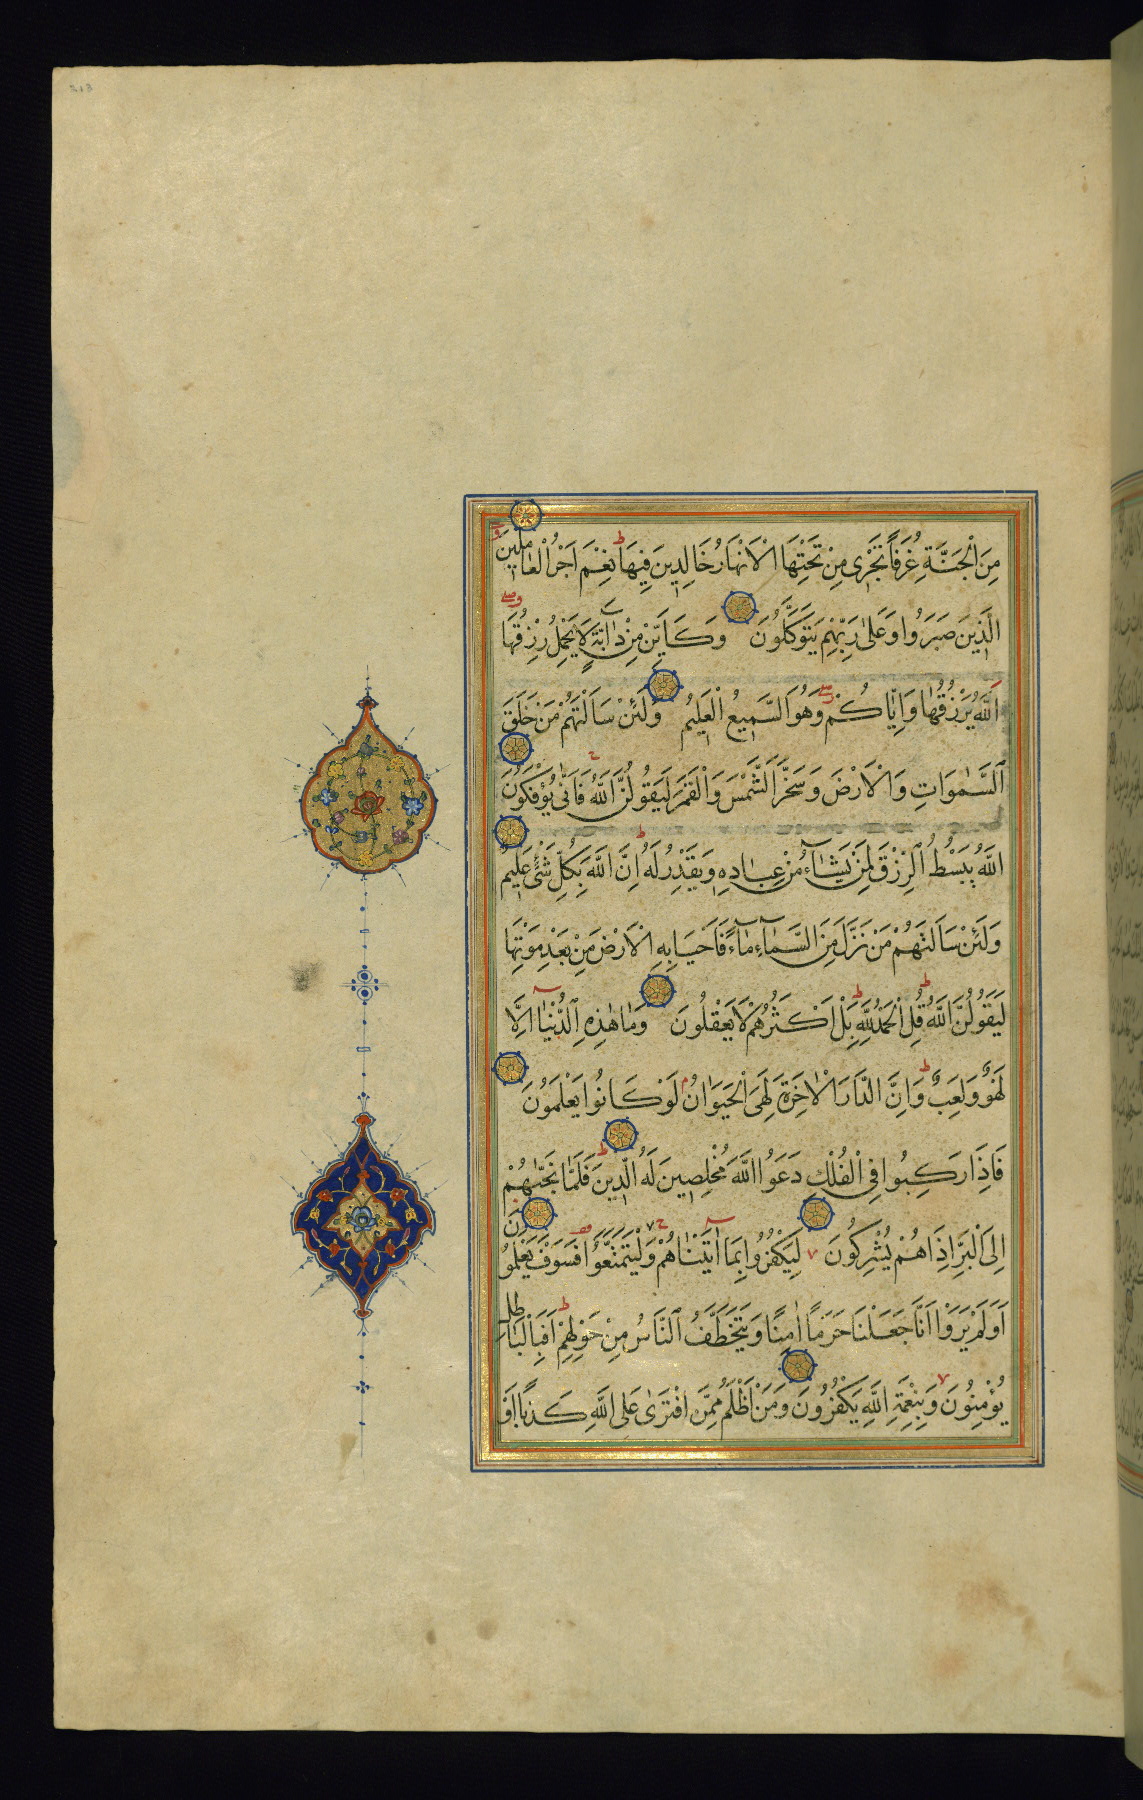 مِنَ الْجَنَّةِ غُرَفًا تَجْرِى مِنْ تَحْتِهَا الْاَنْهَارُ خَالِدِينَ فِيهَا نِعْمَ اَجْرُ الْعَامِلِينَ
الَّذِينَ صَبَرُوا وَعَلٰى رَبِّهِمْ يَتَوَكَّلُونَ وَكَاَيِّنْ مِنْ دَابَّةٍ لَا يَحْمِلُ رِزْقَهَا
اللّٰهُ يَرْزُقُهَا وَاِيَّاكُمْ وَهُوَ السَّمِيعُ الْعَلِيمُ وَلَئِنْ سَاَلْتَهُمْ مَنْ خَلَقَ
السَّمٰوَاتِ وَالْاَرْضَ وَسَخَّرَ الشَّمْسَ وَالْقَمَرَ لَيَقُولُنَّ اللّٰهُ فَاَنّٰى يُؤْفَكُونَ
اللّٰهُ يَبْسُطُ الرِّزْقَ لِمَنْ يَشَاءُ مِنْ عِبَادِهِ وَيَقْدِرُ لَهُ اِنَّ اللّٰهَ بِكُلِّ شَىْءٍ عَلِيمٌ
وَلَئِنْ سَاَلْتَهُمْ مَنْ نَزَّلَ مِنَ السَّمَاءِ مَاءً فَاَحْيَا بِهِ الْاَرْضَ مِنْ بَعْدِ مَوْتِهَا
لَيَقُولُنَّ اللّٰهُ قُلِ الْحَمْدُ لِلّٰهِ بَلْ اَكْثَرُهُمْ لَا يَعْقِلُونَ وَمَا هٰذِهِ الْحَيٰوةُ الدُّنْيَا اِلَّا
لَهْوٌ وَلَعِبٌ وَاِنَّ الدَّارَ الْاٰخِرَةَ لَهِىَ الْحَيَوَانُ لَوْ كَانُوا يَعْلَمُونَ
فَاِذَا رَكِبُوا فِى الْفُلْكِ دَعَوُا اللّٰهَ مُخْلِصِينَ لَهُ الدِّينَ فَلَمَّا نَجّٰيهُمْ
اِلَى الْبَرِّ اِذَا هُمْ يُشْرِكُونَ لِيَكْفُرُوا بِمَا اٰتَيْنَاهُمْ وَلِيَتَمَتَّعُوا فَسَوْفَ يَعْلَمُونَ
اَوَلَمْ يَرَوْا اَنَّا جَعَلْنَا حَرَمًا اٰمِنًا وَيُتَخَطَّفُ النَّاسُ مِنْ حَوْلِهِمْ اَفَبِالْبَاطِلِ
يُؤْمِنُونَ وَبِنِعْمَةِ اللّٰهِ يَكْفُرُونَ وَمَنْ اَظْلَمُ مِمَّنِ افْتَرٰى عَلَى اللّٰهِ كَذِبًا اَوْ